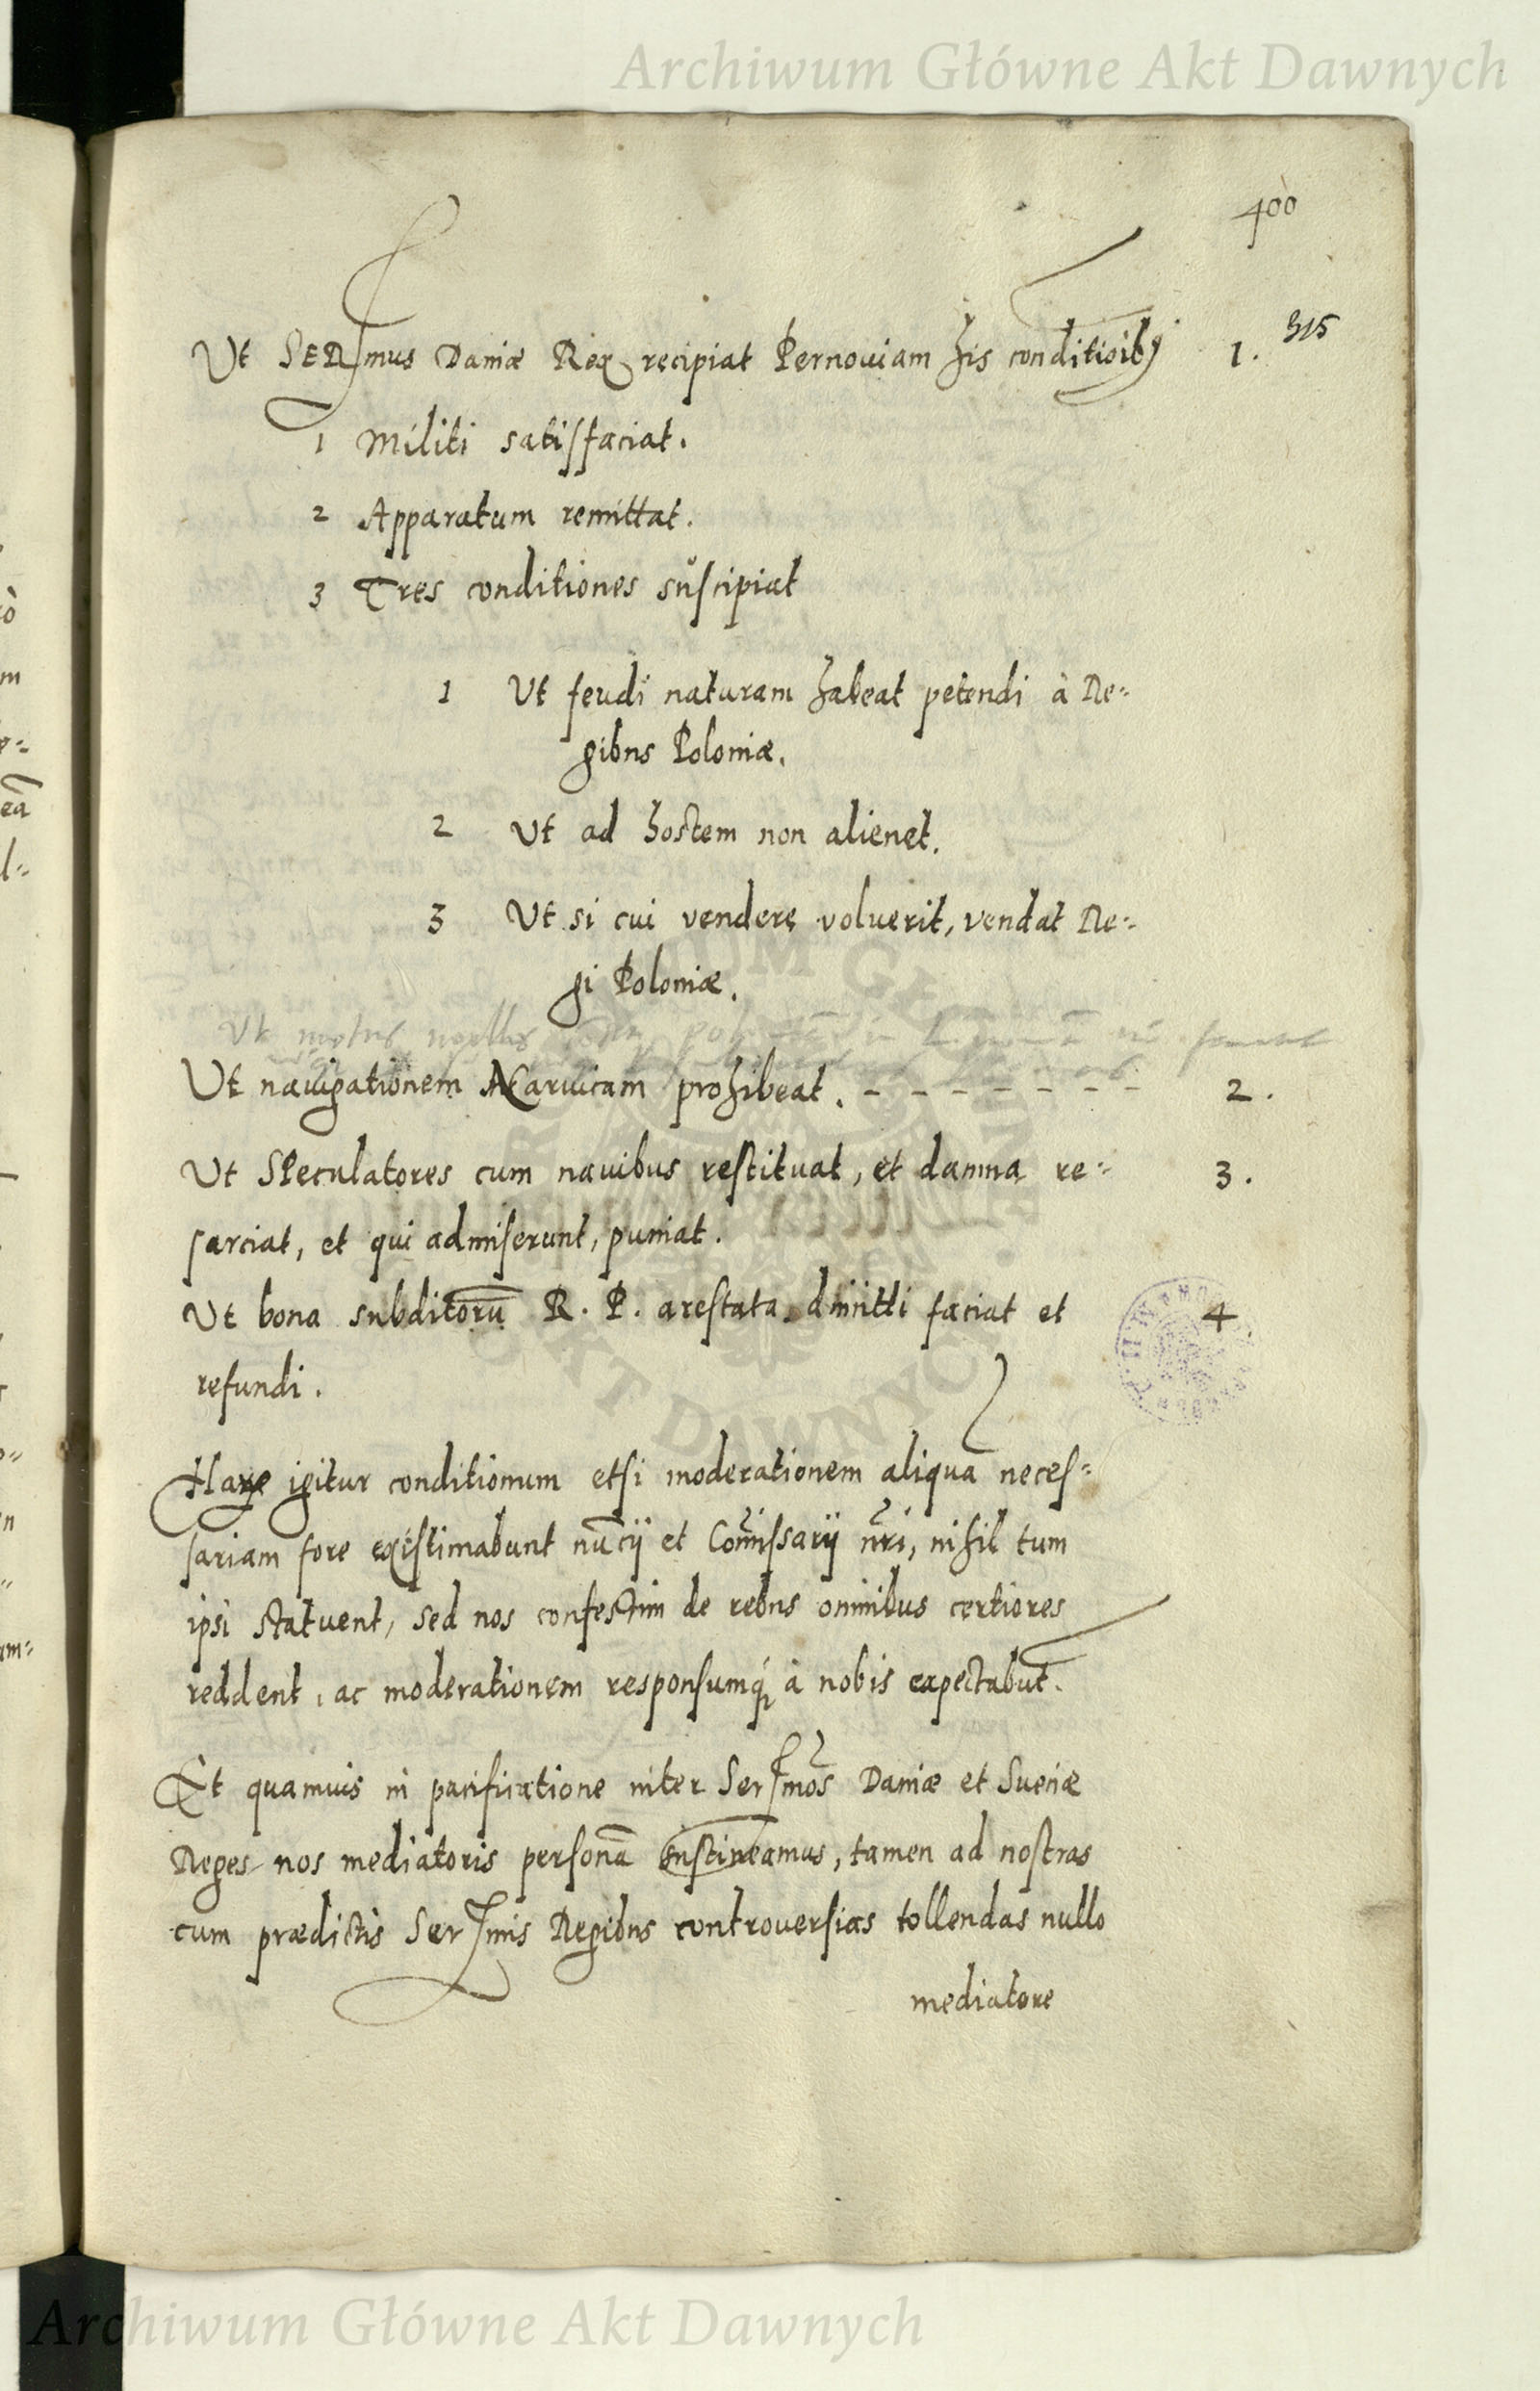 Archiwum Główne Akt Dawnych
400
315
Ut SERmus Daniæ Rex recipiat Pernouiam his conditioibꝫ 1.
1 Militi satisfaciat.
2 Apparatum remittat.
3 Tres conditiones suscipiat
1 Ut feudi naturam habeat petendi à Re=
gibus Poloniæ.
2 Ut ad hostem non alienet.
3 Ut si cui vendere voluerit, vendat Re=
gi Poloniæ.
Ut
Ut nauigationem Naruicam prohibeat. - - - - - - - 2.
Ut Speculatores cum nauibus restituat, et damna re= 3.
sarciat, et qui admiserunt, puniat.
Ut bona subditorū R. P. arestata dimitti faciat et 4
refundi.
igitur conditionum etsi moderationem aliquā neces=
sariam fore existimabunt nūcij et Cōmissarij nr̄i, nihil tum
ipsi statuent, sed nos confestim de rebus omnibus certiores
reddent, ac moderationem responsumq́ꝫ à nobis expectabūt.
Et quamuis in pacificatione inter Sermos Daniæ et Sueciæ
Reges nos mediatoris personā sustineamus, tamen ad nostras
cum prædictis Sermis Regibus controuersias tollendas nullo
mediatore
Archiwum Główne Akt Dawnych